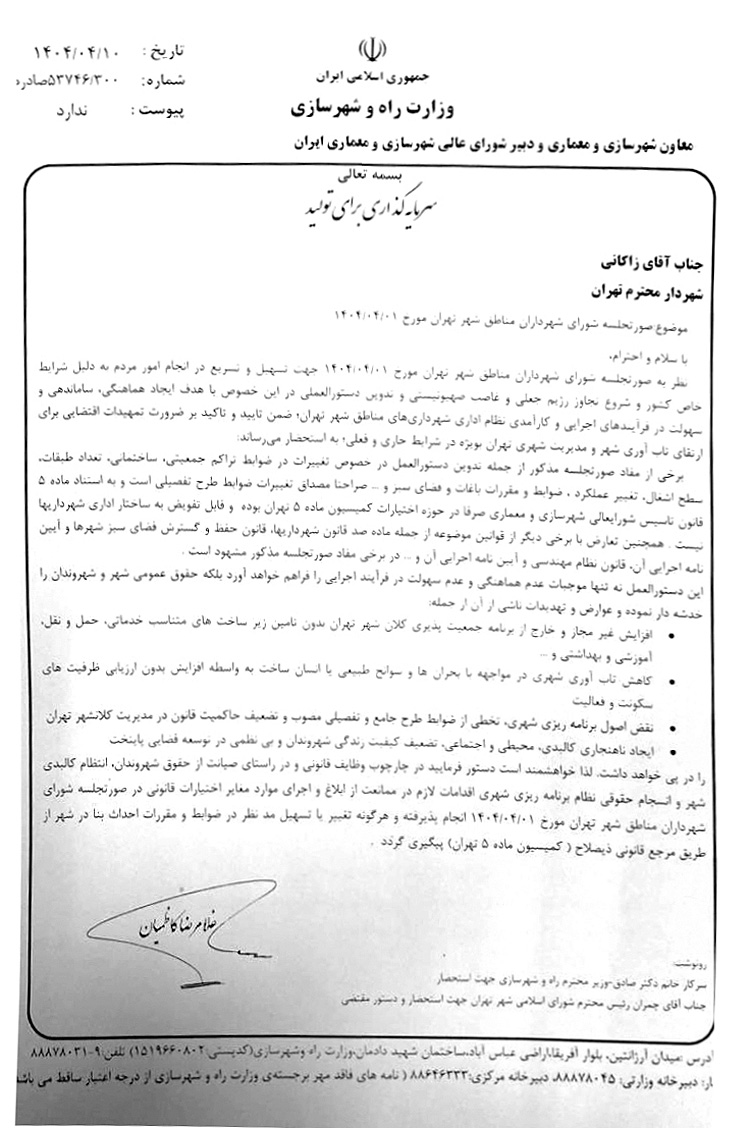 تاریخ : ۱۴۰۴/۰۴/۱۰
شماره: ۵۳۷۴۶/۳۰۰صادره
پیوست : ندارد
جمهوری اسلامی ایران
وزارت راه و شهرسازی
معاون شهرسازی و معماری و دبیر شورای عالی شهرسازی و معماری ایران
بسمه تعالی
سرمایه گذاری برای تولید
جناب آقای زاکانی
شهردار محترم تهران
موضوع:صورتجلسه شورای شهرداران مناطق شهر تهران مورخ ۱۴۰۴/۰۴/۰۱
با سلام و احترام،
نظر به صورتجلسه شورای شهرداران مناطق شهر تهران مورخ ۱۴۰۴/۰۴/۰۱ جهت تسهیل و تسریع در انجام امور مردم به دلیل شرایط
خاص کشور و شروع تجاوز رژیم جعلی و غاصب صهیونیستی و تدوین دستورالعملی در این خصوص با هدف ایجاد هماهنگی، ساماندهی و
سهولت در فرآیندهای اجرایی و کارآمدی نظام اداری شهرداری‌های مناطق شهر تهران؛ ضمن تایید و تاکید بر ضرورت تمهیدات اقتضایی برای
ارتقای تاب آوری شهر و مدیریت شهری تهران بویژه در شرایط جاری و فعلی؛ به استحضار می‌رساند:
برخی از مفاد صورتجلسه مذکور از جمله تدوین دستورالعمل در خصوص تغییرات در ضوابط تراکم جمعیتی، ساختمانی، تعداد طبقات،
سطح اشغال، تغییر عملکرد ، ضوابط و مقررات باغات و فضای سبز و ... صراحتا مصداق تغییرات ضوابط طرح تفصیلی است و به استناد ماده ۵
قانون تاسیس شورایعالی شهرسازی و معماری صرفا در حوزه اختیارات کمیسیون ماده ۵ تهران بوده و قابل تفویض به ساختار اداری شهرداریها
نیست . همچنین تعارض با برخی دیگر از قوانین موضوعه از جمله ماده صد قانون شهرداریها، قانون حفظ و گسترش فضای سبز شهرها و آیین
نامه اجرایی آن، قانون نظام مهندسی و آیین نامه اجرایی آن و ... در برخی مفاد صورتجلسه مذکور مشهود است .
این دستورالعمل نه تنها موجبات عدم هماهنگی و عدم سهولت در فرآیند اجرایی را فراهم خواهد آورد بلکه حقوق عمومی شهر و شهروندان را
خدشه دار نموده و عوارض و تهدیدات ناشی از آن از جمله:
• افزایش غیر مجاز و خارج از برنامه جمعیت پذیری کلان شهر تهران بدون تامین زیر ساخت های متناسب خدماتی، حمل و نقل،
آموزشی و بهداشتی و ...
• کاهش تاب آوری شهری در مواجهه با بحران ها و سوانح طبیعی یا انسان ساخت به واسطه افزایش بدون ارزیابی ظرفیت های
سکونت و فعالیت
• نقض اصول برنامه ریزی شهری، تخطی از ضوابط طرح جامع و تفصیلی مصوب و تضعیف حاکمیت قانون در مدیریت کلانشهر تهران
• ایجاد ناهنجاری کالبدی، محیطی و اجتماعی، تضعیف کیفیت زندگی شهروندان و بی نظمی در توسعه فضایی پایتخت
را در پی خواهد داشت. لذا خواهشمند است دستور فرمایید در چارچوب وظایف قانونی و در راستای صیانت از حقوق شهروندان، انتظام کالبدی
شهر و انسجام حقوقی نظام برنامه ریزی شهری اقدامات لازم در ممانعت از ابلاغ و اجرای موارد مغایر اختیارات قانونی در صورتجلسه شورای
شهرداران مناطق شهر تهران مورخ ۱۴۰۴/۰۴/۰۱ انجام پذیرفته و هرگونه تغییر یا تسهیل مد نظر در ضوابط و مقررات احداث بنا در شهر از
طریق مرجع قانونی ذیصلاح ( کمیسیون ماده ۵ تهران) پیگیری گردد .
غلامرضا کاظمیان
رونوشت:
سرکار خانم دکتر صادق-وزیر محترم راه و شهرسازی جهت استحضار
جناب آقای چمران رئیس محترم شورای اسلامی شهر تهران جهت استحضار و دستور مقتضی
آدرس :میدان آرژانتین، بلوار آفریقا،اراضی عباس آباد،ساختمان شهید دادمان،وزارت راه وشهرسازی(کدپستی:۱۵۱۹۶۶۰۸۰۲) تلفن:۹-۸۸۸۷۸۰۳۱
ار: دبیرخانه وزارتی: ۸۸۸۷۸۰۴۵، دبیرخانه مرکزی:۸۸۶۴۶۳۳۳ ( نامه های فاقد مهر برجسته‌ی وزارت راه و شهرسازی از درجه اعتبار ساقط می باشد